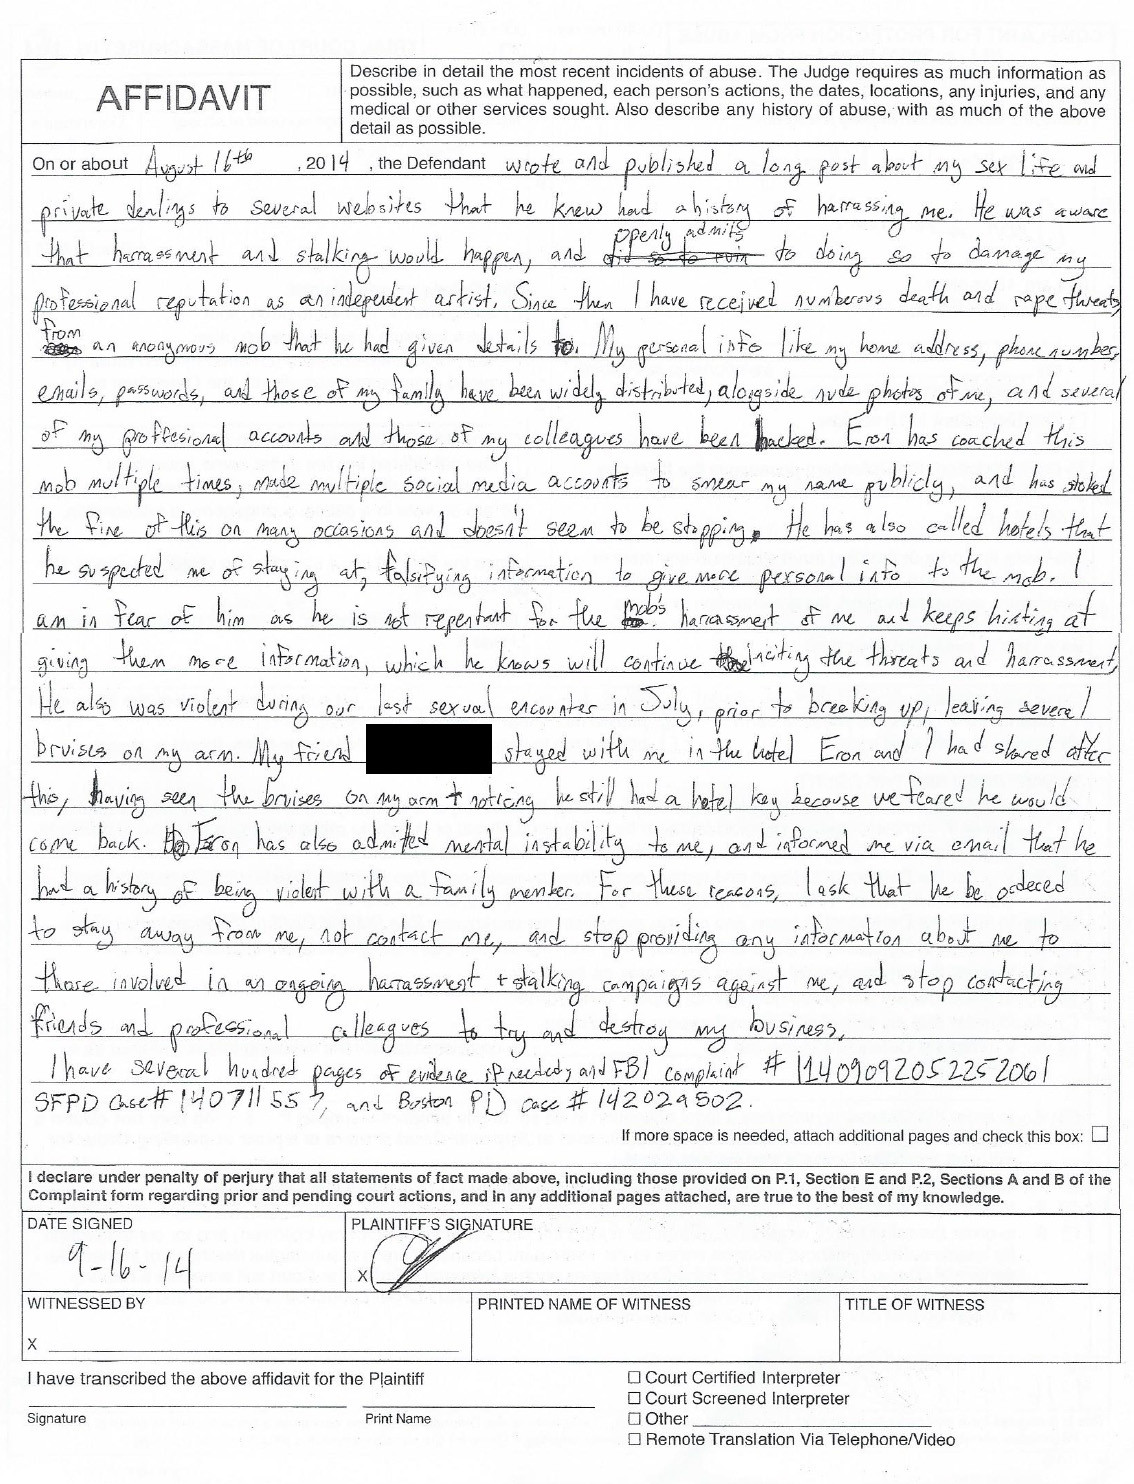 AFFIDAVIT
Describe in detail the most recent incidents of abuse. The Judge requires as much information as
possible, such as what happened, each person's actions, the dates, locations, any injuries, and any
medical or other services sought. Also describe any history of abuse, with as much of the above
detail as possible.
On or about August 16th, 2014, the Defendant wrote and published a long post about my sex life and
private dealings to several websites that he knew had a history of harrassing me. He was aware
that harrassment and stalking would happen, and openly admits to doing so to damage my
professional reputation as an independent artist. Since then I have received numberous death and rape threats
from an anonymous mob that he had given details to. My personal info like my home address, phone number,
emails, passwords, and those of my family have been widely distributed, alongside nude photos of me, and several
of my proffesional accounts and those of my colleagues have been hacked. Eron has coached this
mob multiple times, made multiple social media accounts to smear my name publicly, and has stoked
the fire of this on many occasions and doesn't seem to be stopping. He has also called hotels that
he suspected me of staying at, falsifying information to give more personal info to the mob. I
am in fear of him as he is not repentant for the mob's harrassment of me and keeps hinting at
giving them more information, which he knows will continue inciting the threats and harrassment,
He also was violent during our last sexual encounter in July, prior to breaking up, leaving several
bruises on my arm. My friend stayed with me in the hotel Eron and I had shared after
this, having seen the bruises on my arm + noticing he still had a hotel key because we feared he would
come back. Eron has also admitted mental instability to me, and informed me via email that he
had a history of being violent with a family member. For these reasons, I ask that he be ordered
to stay away from me, not contact me, and stop providing any information about me to
those involved in an ongoing harrassment + stalking campaigns against me, and stop contacting
friends and professional colleagues to try and destroy my business.
I have several hundred pages of evidence if needed, and FBI complaint # I1409092052252061
SFPD Case# 140711557, and Boston PD case # 142029502.
If more space is needed, attach additional pages and check this box: ☐
I declare under penalty of perjury that all statements of fact made above, including those provided on P.1, Section E and P.2, Sections A and B of the
Complaint form regarding prior and pending court actions, and in any additional pages attached, are true to the best of my knowledge.
DATE SIGNED
9-16-14
PLAINTIFF'S SIGNATURE
X
WITNESSED BY
X
PRINTED NAME OF WITNESS
TITLE OF WITNESS
I have transcribed the above affidavit for the Plaintiff
Signature
Print Name
☐ Court Certified Interpreter
☐ Court Screened Interpreter
☐ Other
☐ Remote Translation Via Telephone/Video